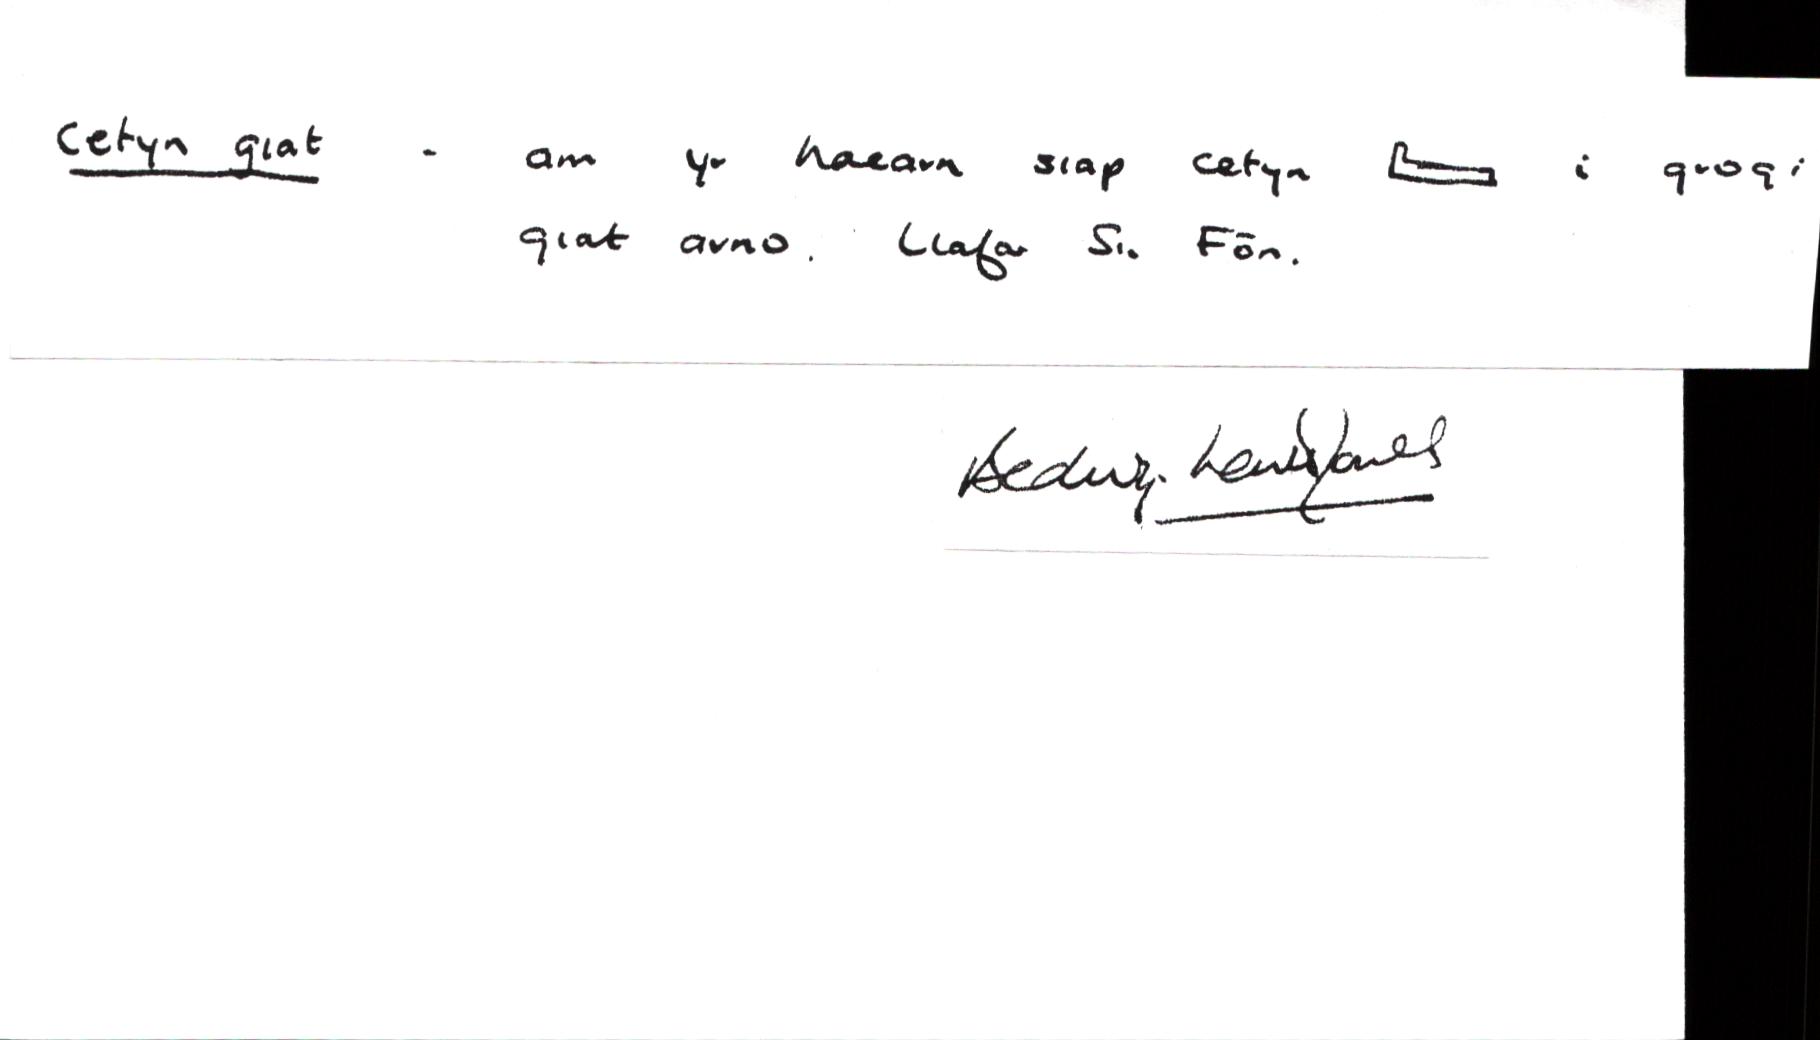 Cetyn giat - am yr haearn siap cetyn i grogi
giat arno. Llafar Sir Fôn.
Bedwyr Lewis Jones